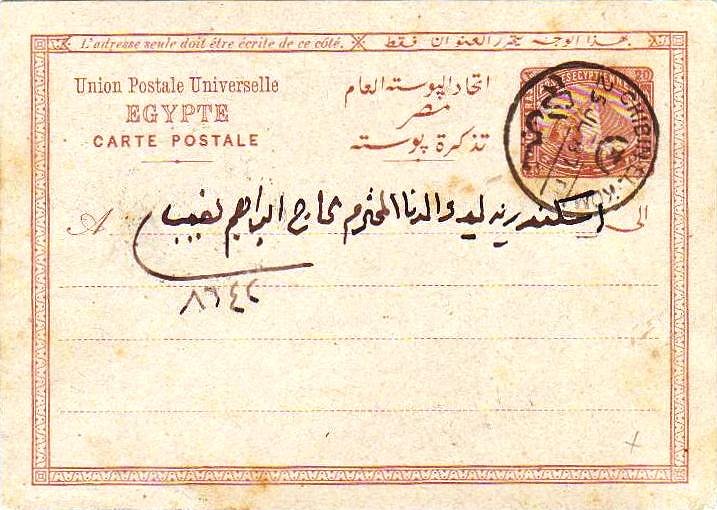 L'adresse seule doit être écrite de ce côté. هذا الوجه يتحرر العنوان فقط
Union Postale Universelle
EGYPTE
CARTE POSTALE
اتحاد البوسته العام
مصر
تذكرة بوسته
CHIBIN-EL-KOM
A
الى
اسكندريه ليد والدنا المحترم
٨٦٤٢